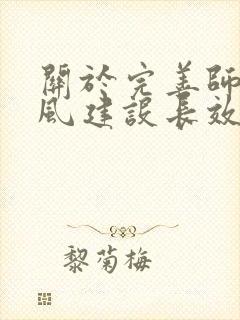 關於完善師
風建設長效
黎菊梅